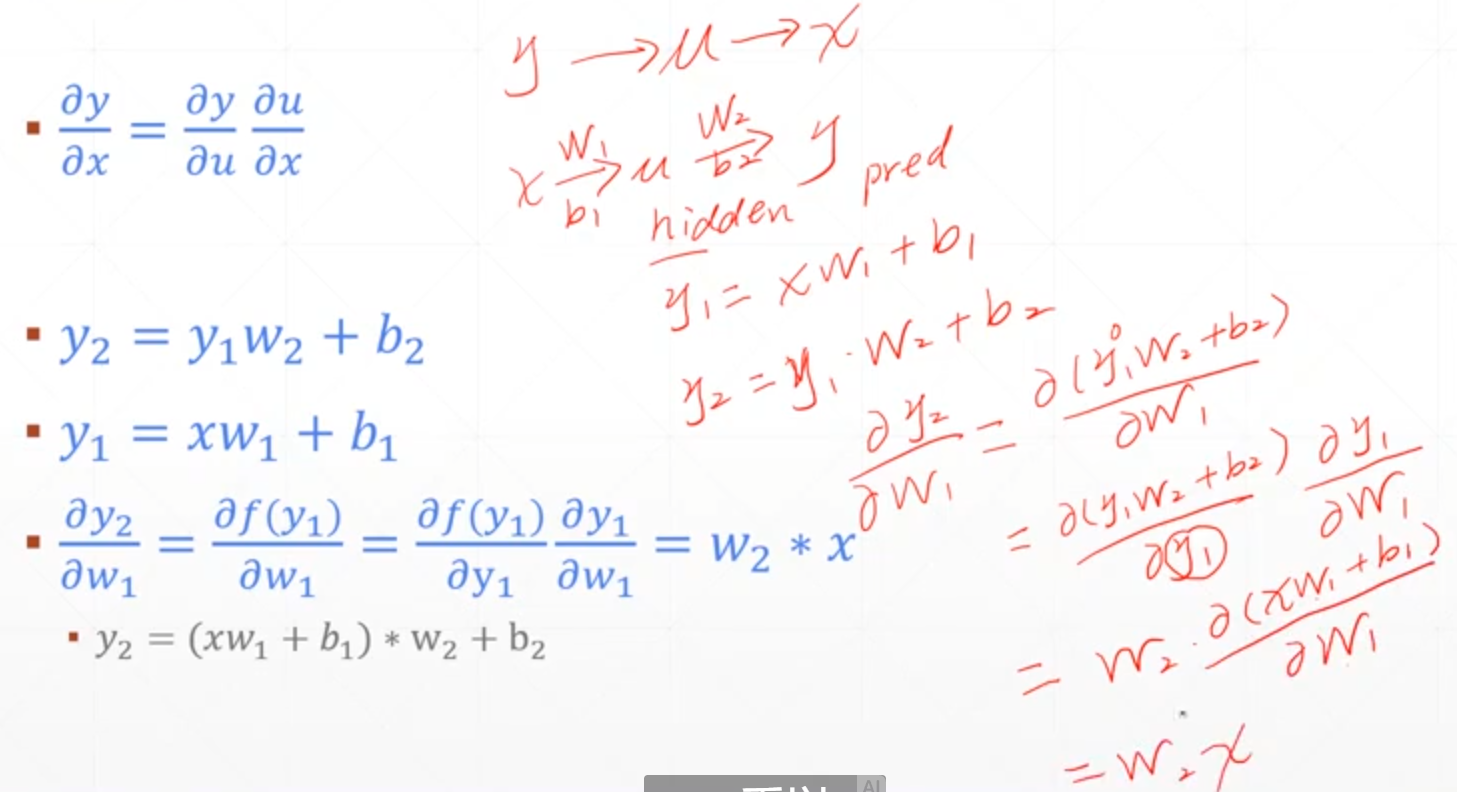 ▪ ∂y/∂x = ∂y/∂u ∂u/∂x
▪ y₂ = y₁w₂ + b₂
▪ y₁ = xw₁ + b₁
▪ ∂y₂/∂w₁ = ∂f(y₁)/∂w₁ = ∂f(y₁)/∂y₁ ∂y₁/∂w₁ = w₂ * x
▪ y₂ = (xw₁ + b₁) * w₂ + b₂
y → u → x
x W₁→b₁ u W₂→b₂ y
hidden pred
y₁ = xW₁ + b₁
y₂ = y₁ · W₂ + b₂
∂y₂/∂W₁ = ∂(y₁W₂ + b₂)/∂W₁
= ∂(y₁W₂ + b₂)/∂y₁ ∂y₁/∂W₁
= W₂ · ∂(xW₁ + b₁)/∂W₁
= W₂x
AI